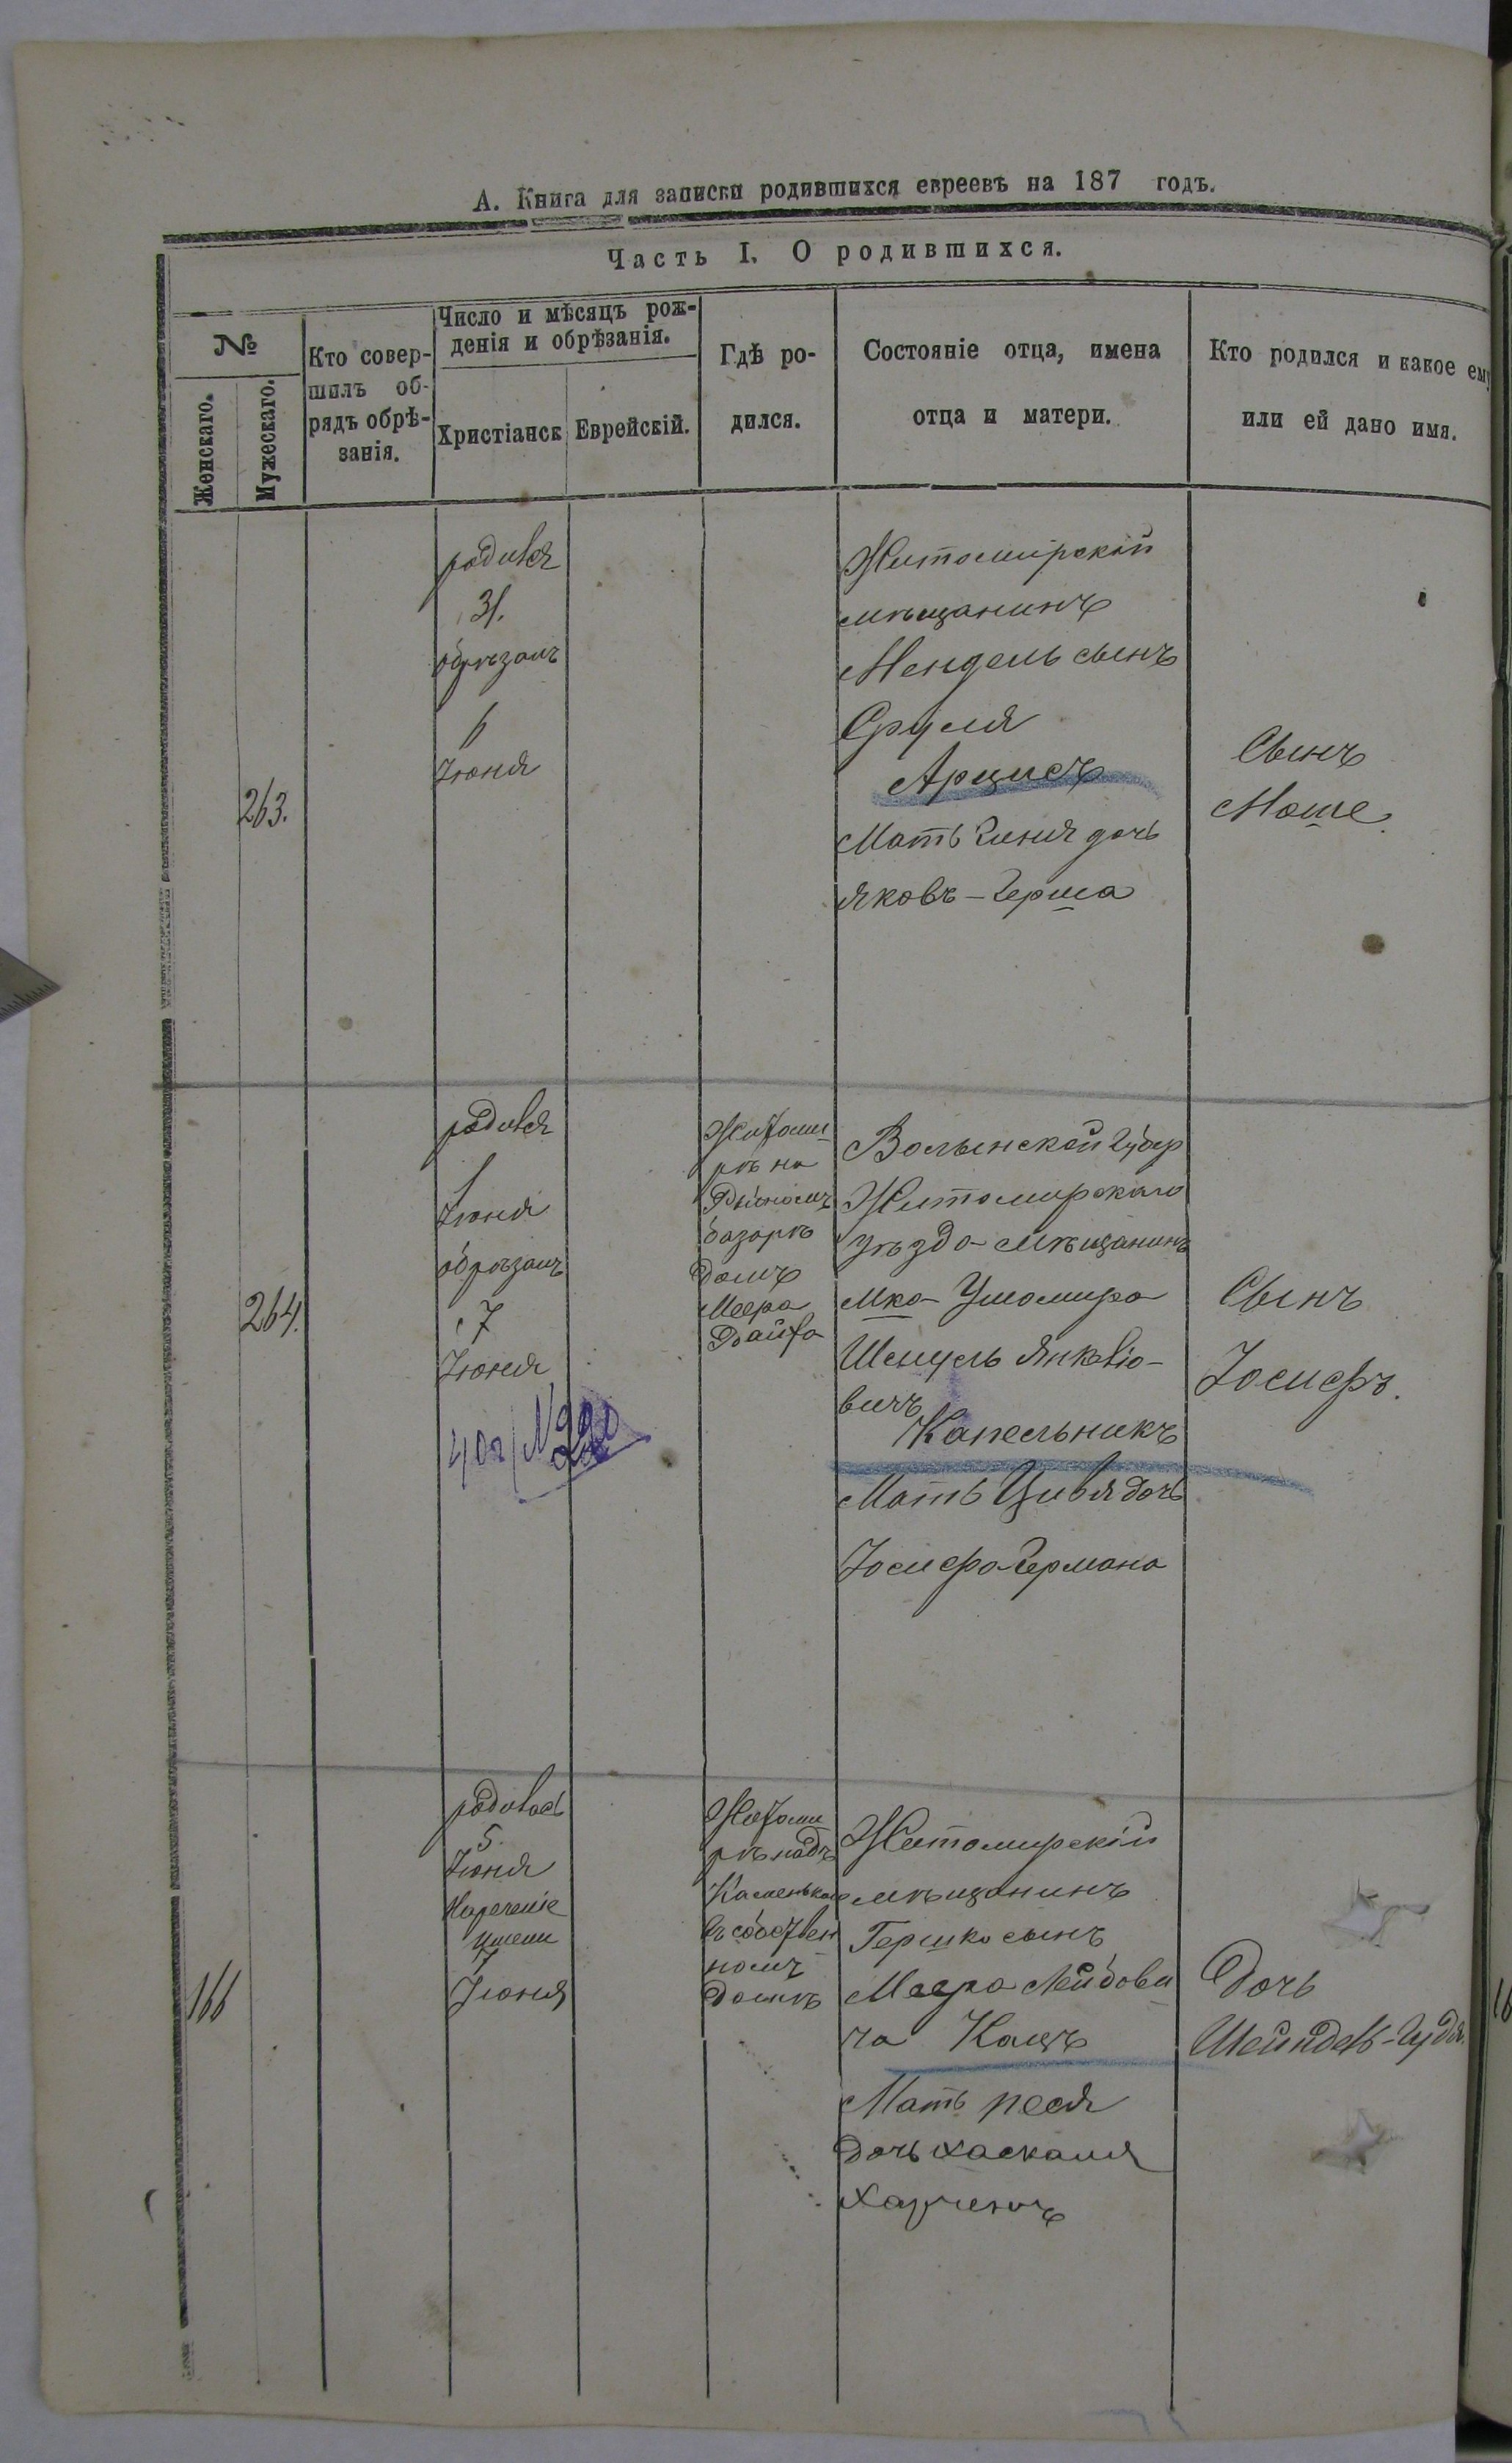 А. Книга для записки родившихся евреевъ на 187 годъ.
Часть I. О родившихся.
№
Женскаго.
Мужескаго.
Кто совер-
шилъ об-
рядъ обрѣ-
занія.
Число и мѣсяцъ рож-
денія и обрѣзанія.
Христіанск
Еврейскій.
Гдѣ ро-
дился.
Состояніе отца, имена
отца и матери.
Кто родился и какое ему
или ей дано имя.
263.
родился
31.
обрѣзанъ
6
Іюня
Житомірскій
мѣщанинъ
Мендель сынъ
Сруля
Арцисъ
Мать Гиня дочь
Яковъ-Герша
Сынъ
Моше.
264.
родился
1
Іюня
обрѣзанъ
7
Іюня
Житоми
рѣ на
Рыбномъ
базарѣ
домъ
Меера
Волынской Губер
Житомирскаго
уѣзда мѣщанинъ
мка Ушомира
Шмуль Янкеліо-
вичъ
Капельникъ
Мать Цивя дочь
Іосифа Германа
Сынъ
Іосифъ.
166
родилась
5.
Іюня
Нареченіе
имени
7
Іюня
Житоми
рѣ надъ
Каменькою
въ собствен
номъ
домѣ
Житомирскій
мѣщанинъ
Гершко сынъ
Меера Лейбови
ча Кацъ
Мать Песя
дочь Хаскеля
Дочь
Шейндель-Гудя.